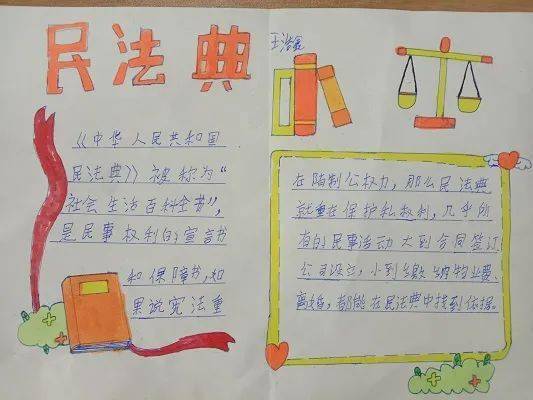 民法典
《中华人民共和国
民法典》被称为“
社会生活百科全书”,
是民事权利的宣言书
和保障书,如
果说宪法重
在限制公权力,那么民法典
就重在保护私权利,几乎所
有的民事活动大到合同签订
公司设立,小到缴纳物业费、
离婚,都能在民法典中找到依据。